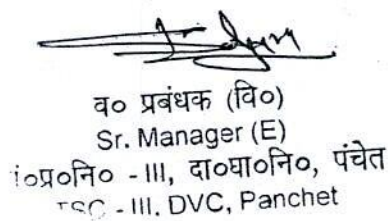 व० प्रबंधक (वि०)
Sr. Manager (E)
ं०प्र०नि० - III, दा०घा०नि०, पंचेत
- III, DVC, Panchet